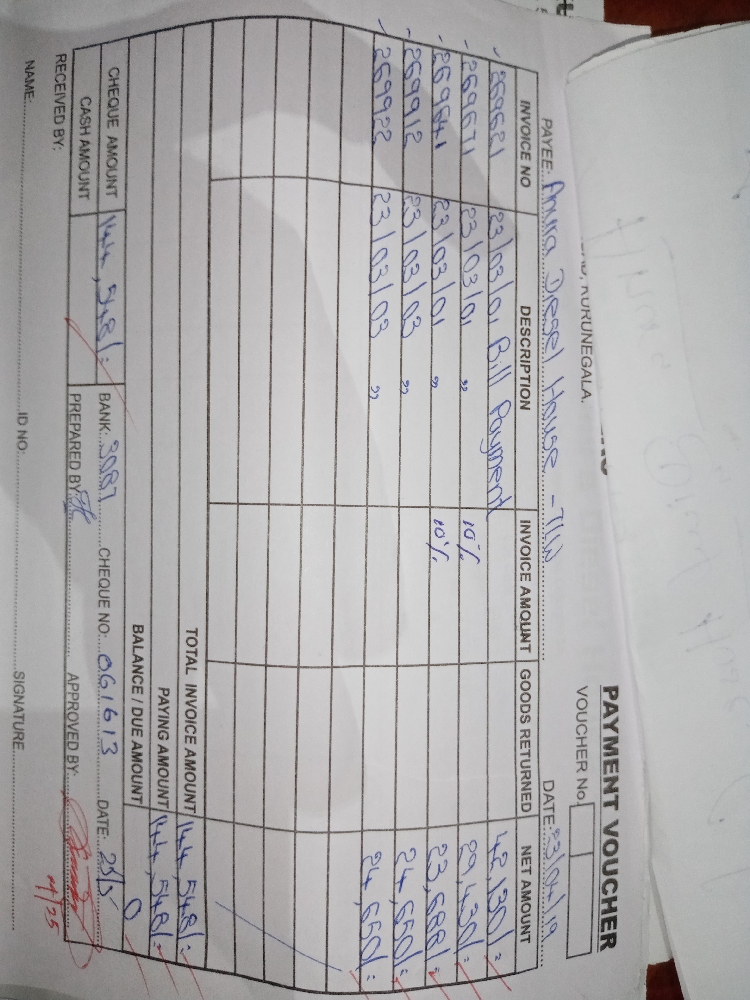 KURUNEGALA.
PAYMENT VOUCHER
VOUCHER No.
PAYEE: Anura Diesel House - TLW DATE: 23/04/19
INVOICE NO DESCRIPTION INVOICE AMOUNT GOODS RETURNED NET AMOUNT
269621 23/03/01 Bill Payment 42,130/=
269671 23/03/01 " 10% 29,430/=
269641 23/03/01 " 10% 23,688/=
269912 23/03/03 " 24,650/=
269922 23/03/03 " 24,650/=
TOTAL INVOICE AMOUNT 144,548/=
PAYING AMOUNT 144,548/=
BALANCE / DUE AMOUNT 0
CHEQUE AMOUNT 144,548/= BANK: 3087 CHEQUE NO: 061613 DATE: 25/5
CASH AMOUNT PREPARED BY: APPROVED BY:
RECEIVED BY:
NAME: ID NO: SIGNATURE